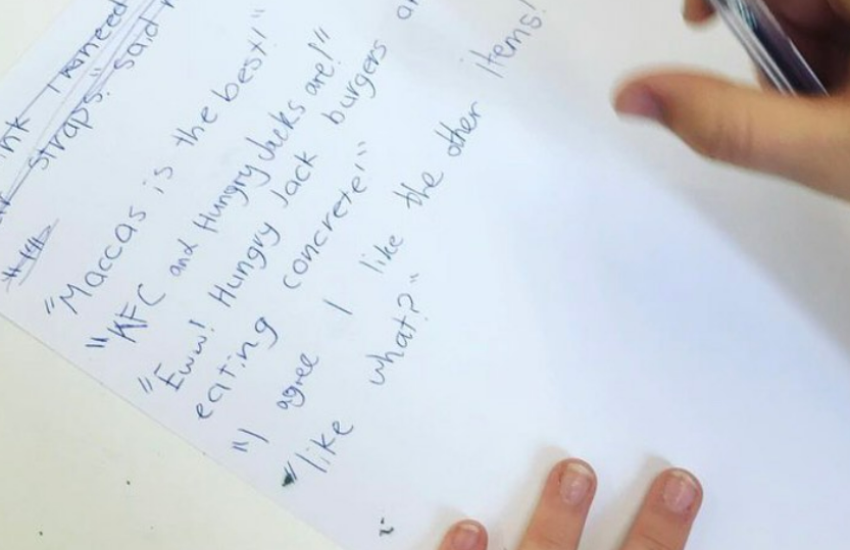 straps." said
"Maccas is the best!"
"KFC and Hungry Jacks are!"
"Eww! Hungry Jack burgers
eating concrete!"
"I agree I like the other items!
"like what?"